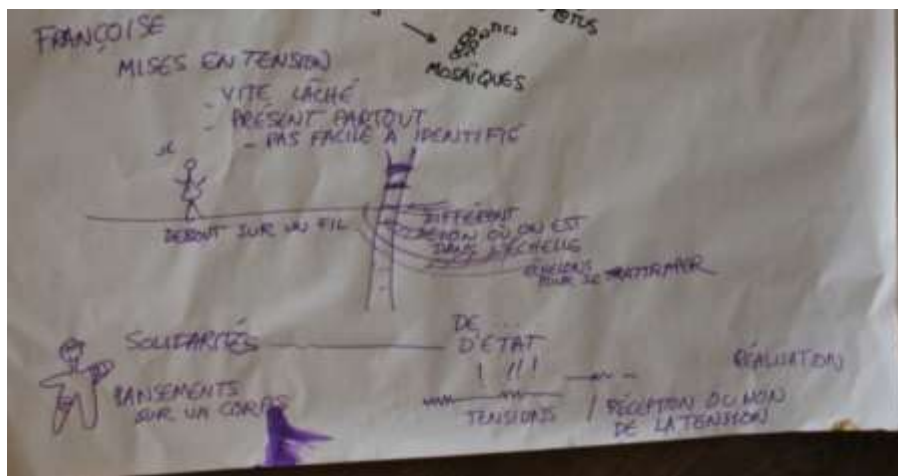 FRANÇOISE
MOSAÏQUES
MISES EN TENSION
- VITE LÂCHÉ
- PRÉSENT PARTOUT
- PAS FACILE À IDENTIFIÉ
DEBOUT SUR UN FIL
DIFFÉRENT
SELON OÙ ON EST
DANS L'ÉCHELLE
ÉCHELONS
POUR SE RATTRAPER
SOLIDARITÉS
DE ...
D'ÉTAT
! !!!
PANSEMENTS
SUR UN CORPS
TENSIONS
RÉCEPTION OU NON
DE LA TENSION
RÉALISATION